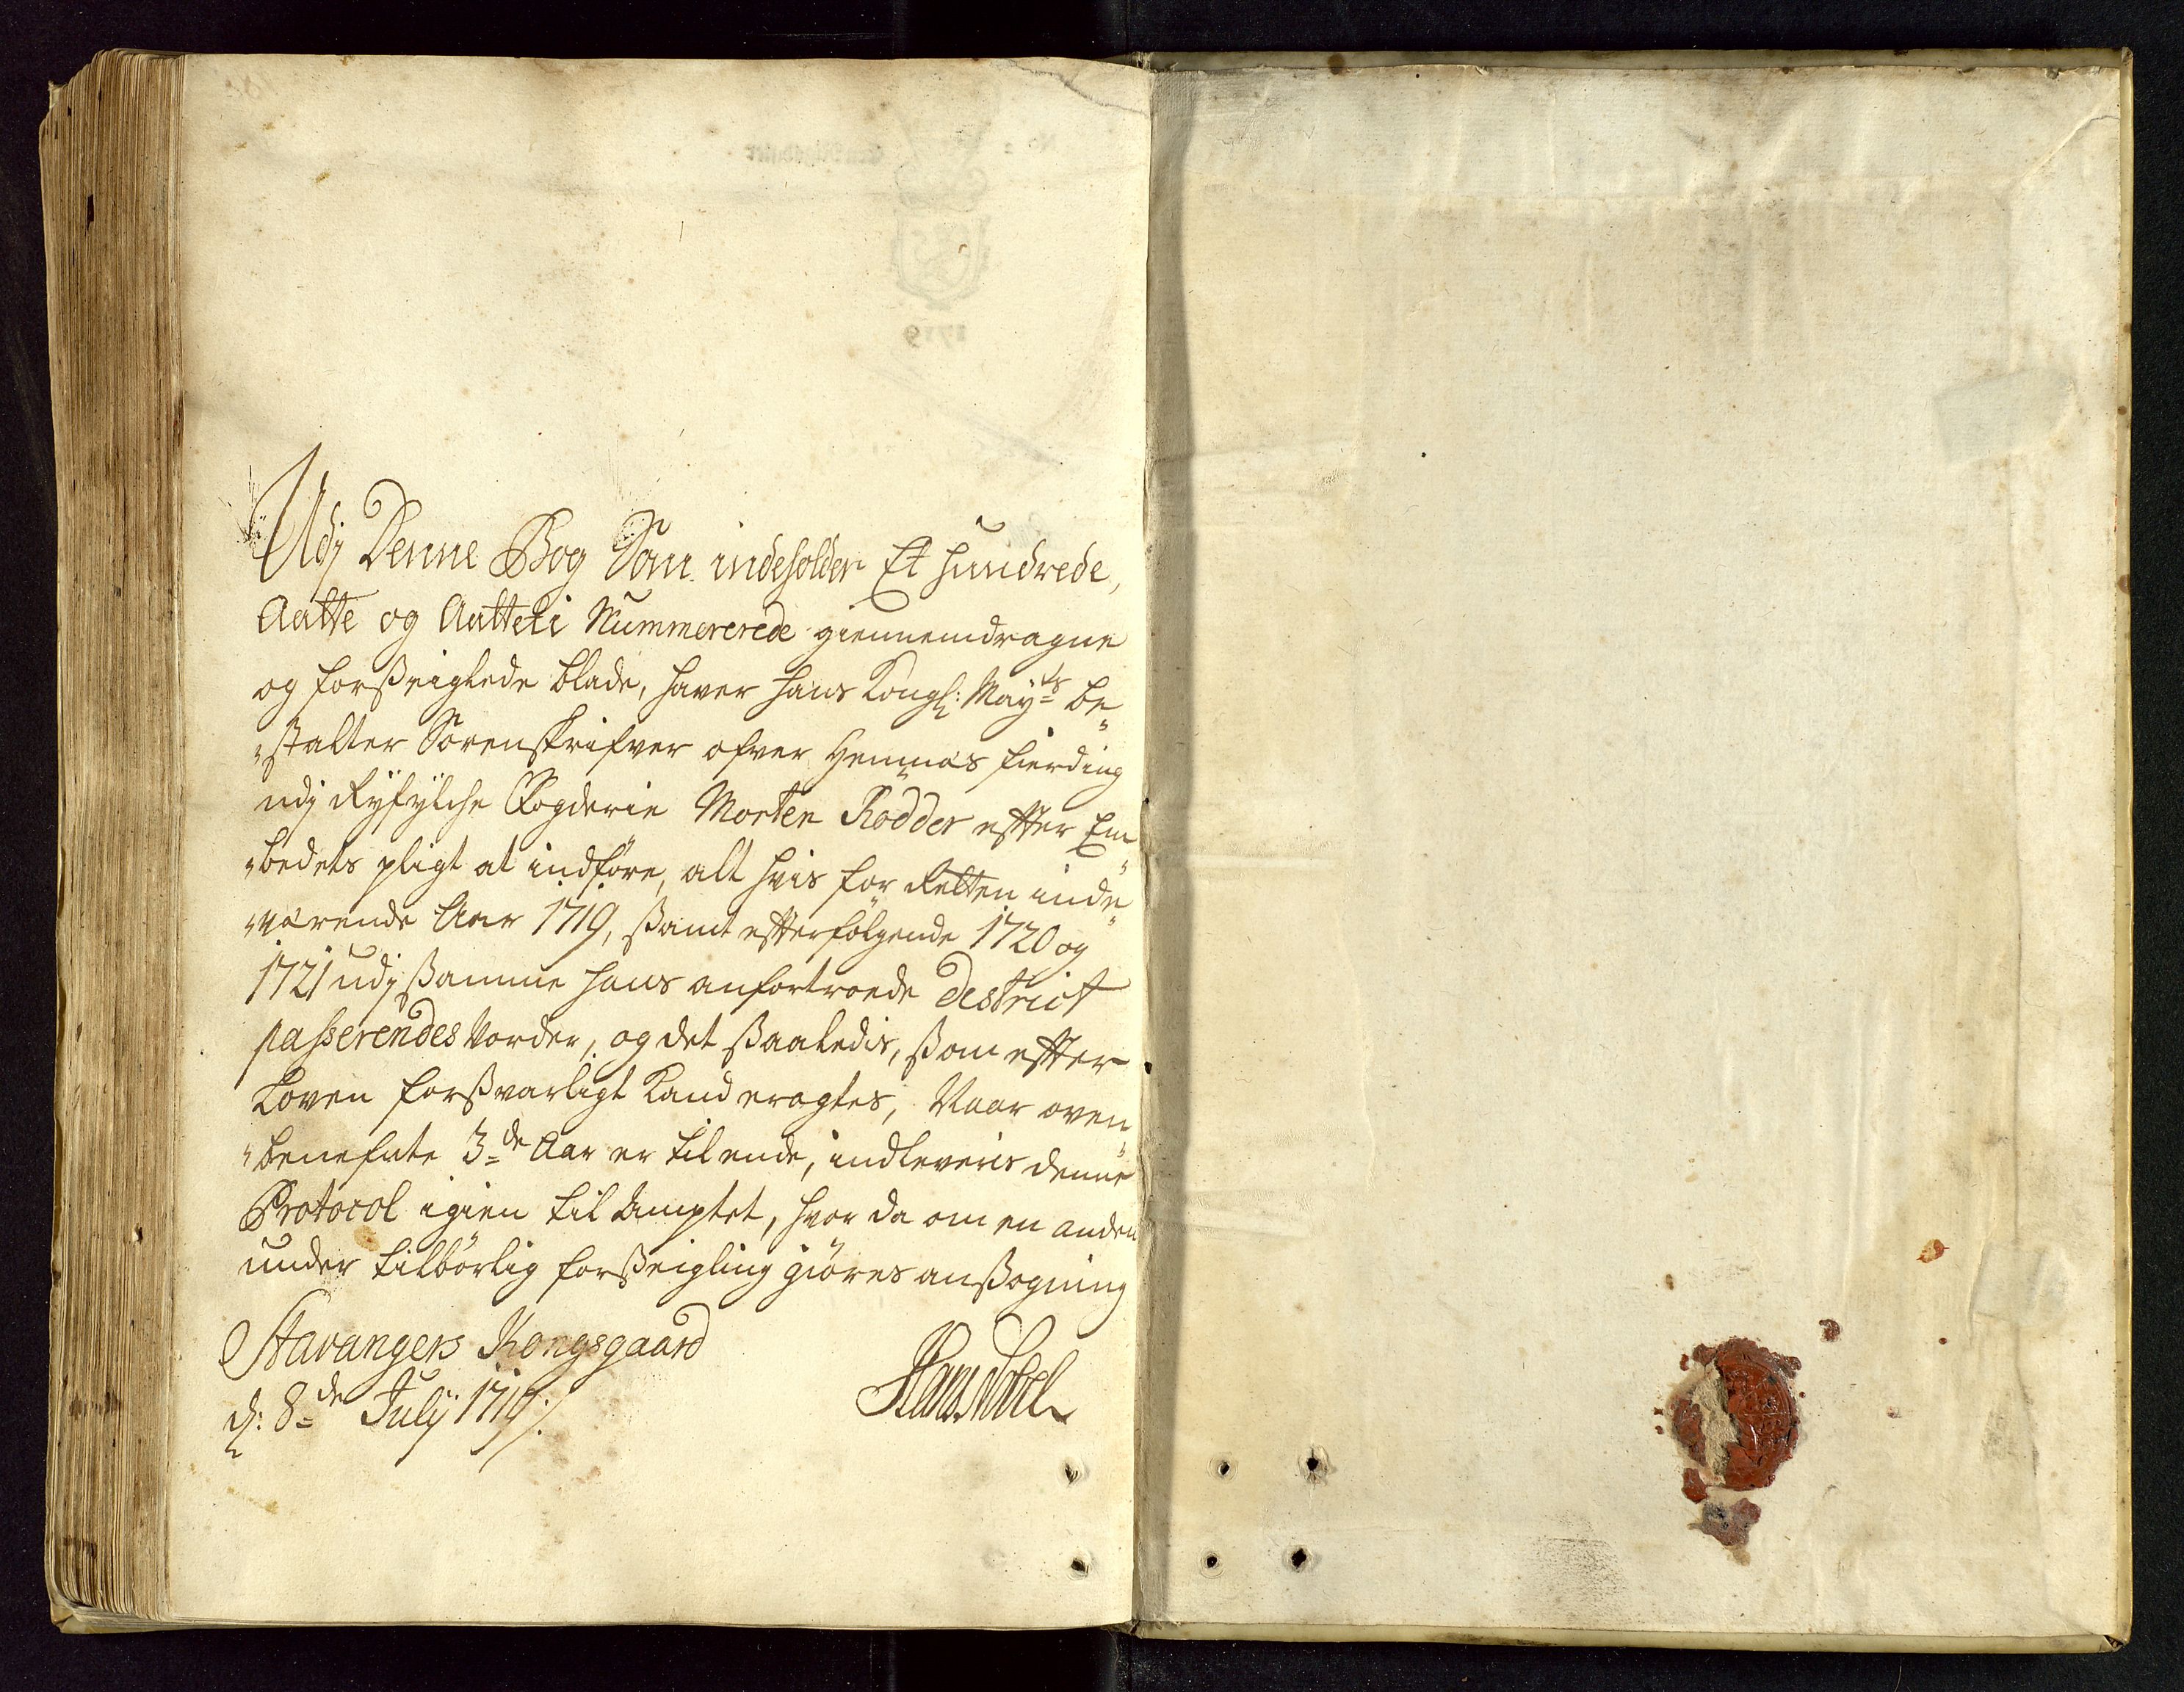 Udj Denne Bog Som indeholder Et hundrede,
Aatte og Aatteti Nummererede giennemdragne
og forsseiglede blade, haver hans Kongl: Mayts be„
„stalter Sorenskrifver ofver Hemnæs fierding
udj Ryfylche Fogderie Morten Rødder effter Em„
„bedets pligt at indføre, alt hvis for Retten inde„
„værende Aar 1719, ssamt effterfølgende 1720 og
1721 udj ssamme hans anfortroede District
passerendes vorder, og det ssaaledis, ssom effter
Loven forssvarligt kand eragtes, Naar oven„
„benefnte 3de Aar er til ende, indleveris denne
Protocol igien til Amptet, hvor da om en anden
under tilbørlig forsseigling giøres anssøgning
Stavangers Kongsgaard
d: 8de Julij 1719 /:
Hans Nobel